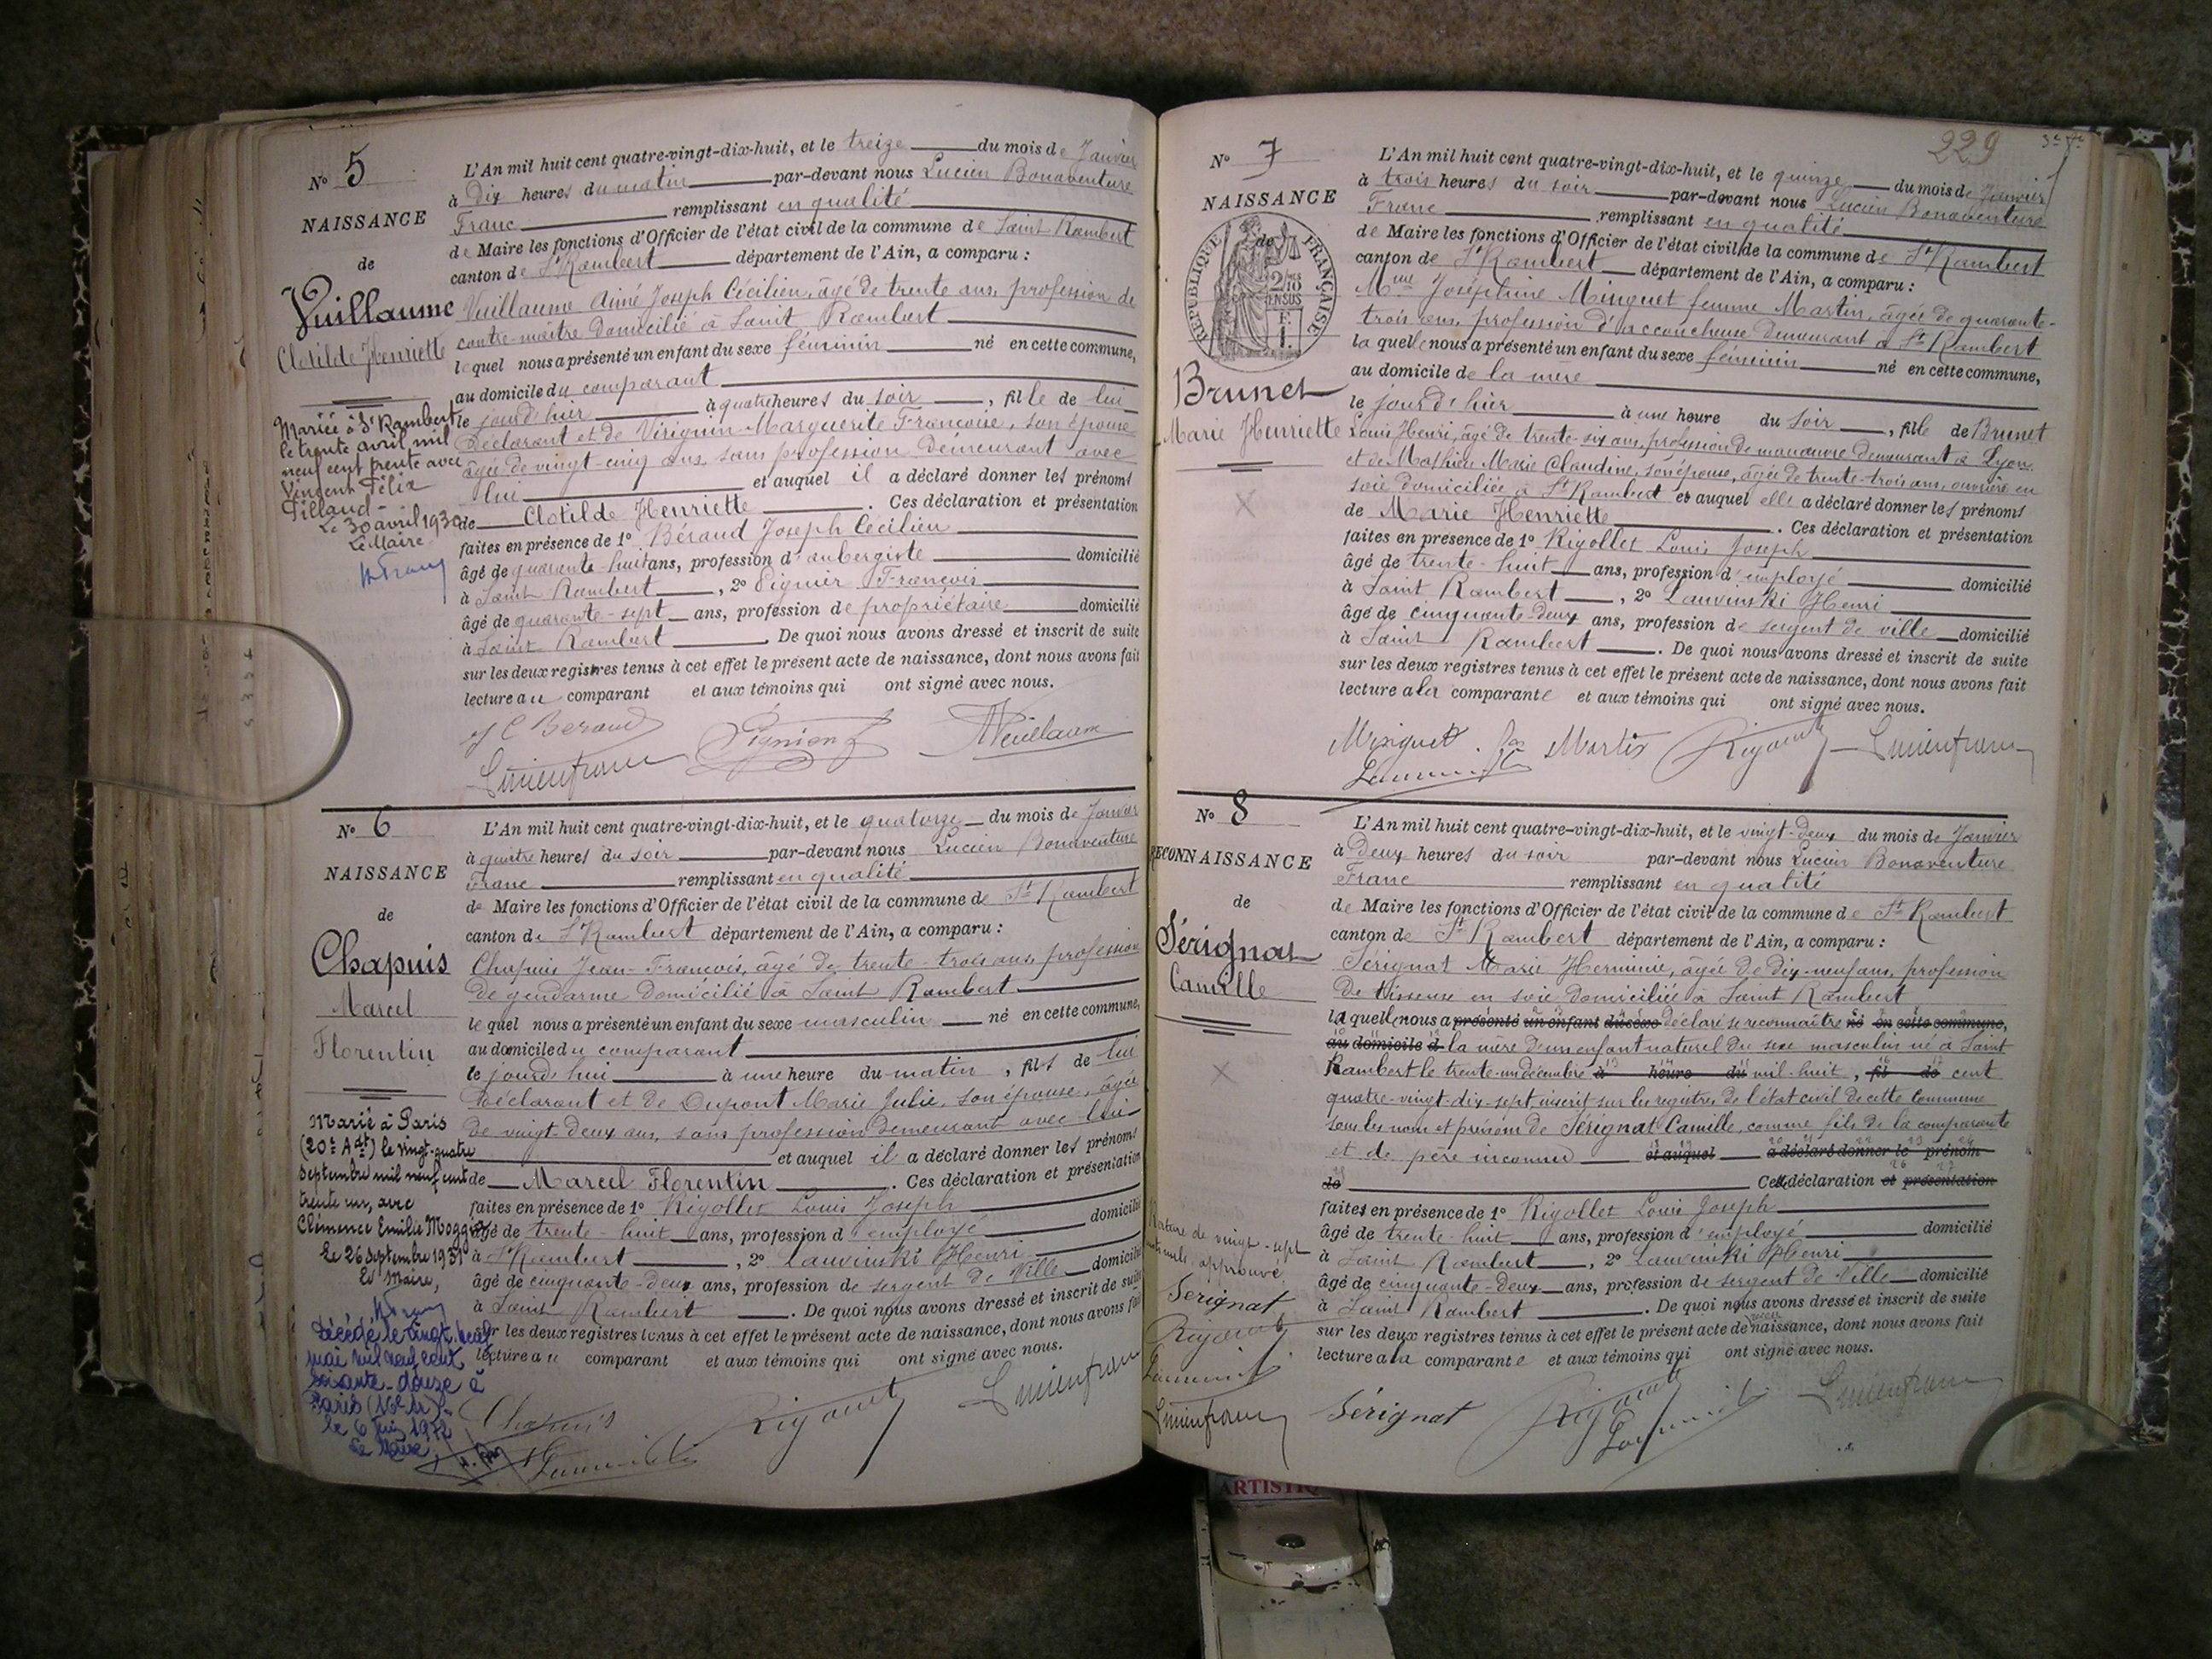 N° 5
NAISSANCE
de
Vuillaume
Clotilde Henriette
Mariée à St Rambert
le trente avril mil
neuf cent trente avec
Vincent Félix
Pillaud
Le 30 avril 1930
Le Maire
L'An mil huit cent quatre-vingt-dix-huit, et le treize du mois de Janvier
à Dix heures du matin par-devant nous Lucien Bonaventure
Franc remplissant en qualité
de Maire les fonctions d'Officier de l'état civil de la commune de Saint Rambert
canton de St Rambert département de l'Ain, a comparu :
Vuillaume Aimé Joseph Cécilien, âgé de trente ans, profession de
contre-maître domicilié à Saint Rambert
lequel nous a présenté un enfant du sexe féminin né en cette commune,
au domicile du comparant
le jour d'hier à quatre heures du soir, fille de lui
Déclarant et de Virignin Marguerite Françoise, son épouse
âgée de vingt-cinq ans, sans profession demeurant avec
lui et auquel il a déclaré donner les prénoms
de Clotilde Henriette. Ces déclaration et présentation
faites en présence de 1° Béraud Joseph Cécilien
âgé de quarante-huit ans, profession d'aubergiste domicilié
à Saint Rambert, 2° Pignier François
âgé de quarante-sept ans, profession de propriétaire domicilié
à Saint Rambert. De quoi nous avons dressé et inscrit de suite
sur les deux registres tenus à cet effet le présent acte de naissance, dont nous avons fait
lecture au comparant et aux témoins qui ont signé avec nous.
J C Beraud
Vuillaume
Lucien franc
N° 6
NAISSANCE
de
Chapuis
Marcel
Florentin
Marié à Paris
(20e Adt) le vingt-quatre
septembre mil neuf cent
trente un, avec
Clémence Emilie Moggio
Le 26 septembre 1931
Le Maire,
Décédé le vingt neuf
mai mil neuf cent
soixante-douze à
Paris (16e)
le 6 juin 1972
Le Maire,
L'An mil huit cent quatre-vingt-dix-huit, et le quatorze du mois de Janvier
à quatre heures du soir par-devant nous Lucien Bonaventure
Franc remplissant en qualité
de Maire les fonctions d'Officier de l'état civil de la commune de St Rambert
canton de St Rambert département de l'Ain, a comparu :
Chapuis Jean-François, âgé de trente-trois ans, profession
de gendarme domicilié à Saint Rambert
lequel nous a présenté un enfant du sexe masculin né en cette commune,
au domicile du comparant
le jourd'hui à une heure du matin, fils de lui
Déclarant et de Dupont Marie Julie, son épouse, âgée
de vingt-deux ans, sans profession demeurant avec lui
et auquel il a déclaré donner les prénoms
de Marcel Florentin. Ces déclaration et présentation
faites en présence de 1° Rigollet Louis Joseph
âgé de trente-huit ans, profession d'employé domicilié
à St Rambert, 2° Lauvinski Henri
âgé de cinquante-deux ans, profession de sergent de Ville domicilié
à Saint Rambert. De quoi nous avons dressé et inscrit de suite
sur les deux registres tenus à cet effet le présent acte de naissance, dont nous avons fait
lecture au comparant et aux témoins qui ont signé avec nous.
Chapuis
Lucien franc
229
N° 7
NAISSANCE
de
RÉPUBLIQUE FRANÇAISE
Brunet
Marie Henriette
L'An mil huit cent quatre-vingt-dix-huit, et le quinze du mois de Janvier
à trois heures du soir par-devant nous Lucien Bonaventure
Franc remplissant en qualité
de Maire les fonctions d'Officier de l'état civil de la commune de St Rambert
canton de St Rambert département de l'Ain, a comparu :
Mme Joséphine Minguet femme Martin, âgée de quarante-
trois ans, profession d'accoucheuse demeurant à St Rambert
laquelle nous a présenté un enfant du sexe féminin né en cette commune,
au domicile de la mère
le jour d'hier à une heure du soir, fille de Brunet
Louis Henri, âgé de trente-six ans, profession de manœuvre demeurant à Lyon
et de Mathieu Marie Claudine, son épouse, âgée de trente-trois ans, ouvrière en
soie domiciliée à St Rambert et auquel elle a déclaré donner les prénoms
de Marie Henriette. Ces déclaration et présentation
faites en présence de 1° Rigollet Louis Joseph
âgé de trente-huit ans, profession d'employé domicilié
à Saint Rambert, 2° Lauvinski Henri
âgé de cinquante-deux ans, profession de sergent de ville domicilié
à Saint Rambert. De quoi nous avons dressé et inscrit de suite
sur les deux registres tenus à cet effet le présent acte de naissance, dont nous avons fait
lecture à la comparante et aux témoins qui ont signé avec nous.
Minguet fe Martin
Lucien franc
N° 8
RECONNAISSANCE
de
Sérignat
Camille
Rature de vingt-sept
mots nuls, approuvé
Serignat
Lucien franc
L'An mil huit cent quatre-vingt-dix-huit, et le vingt-deux du mois de Janvier
à Deux heures du soir par-devant nous Lucien Bonaventure
Franc remplissant en qualité
de Maire les fonctions d'Officier de l'état civil de la commune de St Rambert
canton de St Rambert département de l'Ain, a comparu :
Sérignat Marie Herminie, âgée de dix-neuf ans, profession
de tisseuse en soie domiciliée à Saint Rambert
laquelle nous a présenté un enfant du sexe déclaré se reconnaître né en cette commune,
au domicile d la mère d'un enfant naturel du sexe masculin né à Saint
Rambert le trente-un décembre à heure du mil-huit, fil de cent
quatre-vingt-dix-sept, inscrit sur les registres de l'état civil de cette commune
sous les nom et prénom de Sérignat Camille, comme fils de la comparante
et de père inconnu et auquel a déclaré donner le prénom
de Cette déclaration et présentation
faites en présence de 1° Rigollet Louis Joseph
âgé de trente-huit ans, profession d'employé domicilié
à Saint Rambert, 2° Lauvinski Henri
âgé de cinquante-deux ans, profession de sergent de Ville domicilié
à Saint Rambert. De quoi nous avons dressé et inscrit de suite
sur les deux registres tenus à cet effet le présent acte de naissance, dont nous avons fait
lecture à la comparante et aux témoins qui ont signé avec nous.
Sérignat
Lucien franc
ARTISTIQ